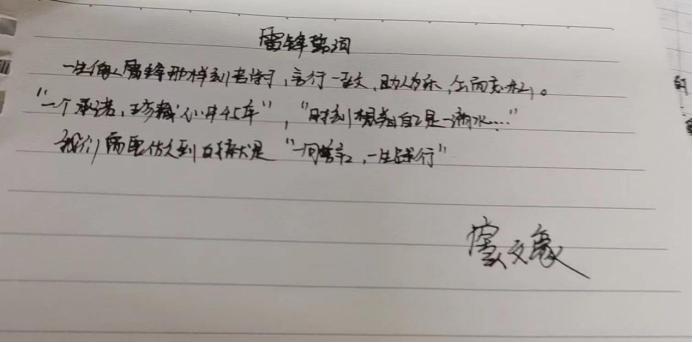 雷锋誓词
一生像雷锋那样刻苦学习,言行一致,助人为乐,公而忘私。
"一个承诺,坚45年","时刻想着自己是一滴水..."
我们需要做到的是"一同誓言,一生践行"
窦文豪